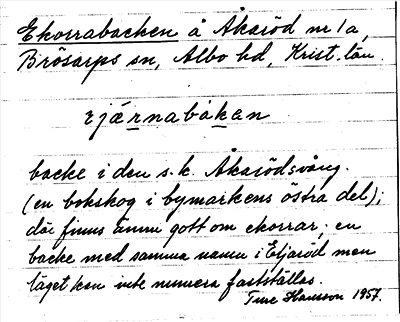 Ekorrabacken å Åkaröd nr 1a,
Brösarps sn, Albo hd, Krist. län.
backe i den s.k. Åkarödsvång.
(en bokskog i bymarkens östra del);
där finns ännu gott om ekorrar; en
backe med samma namn i Eljaröd men
läget kan inte numera fastställas.
Ture Hansson 1957.